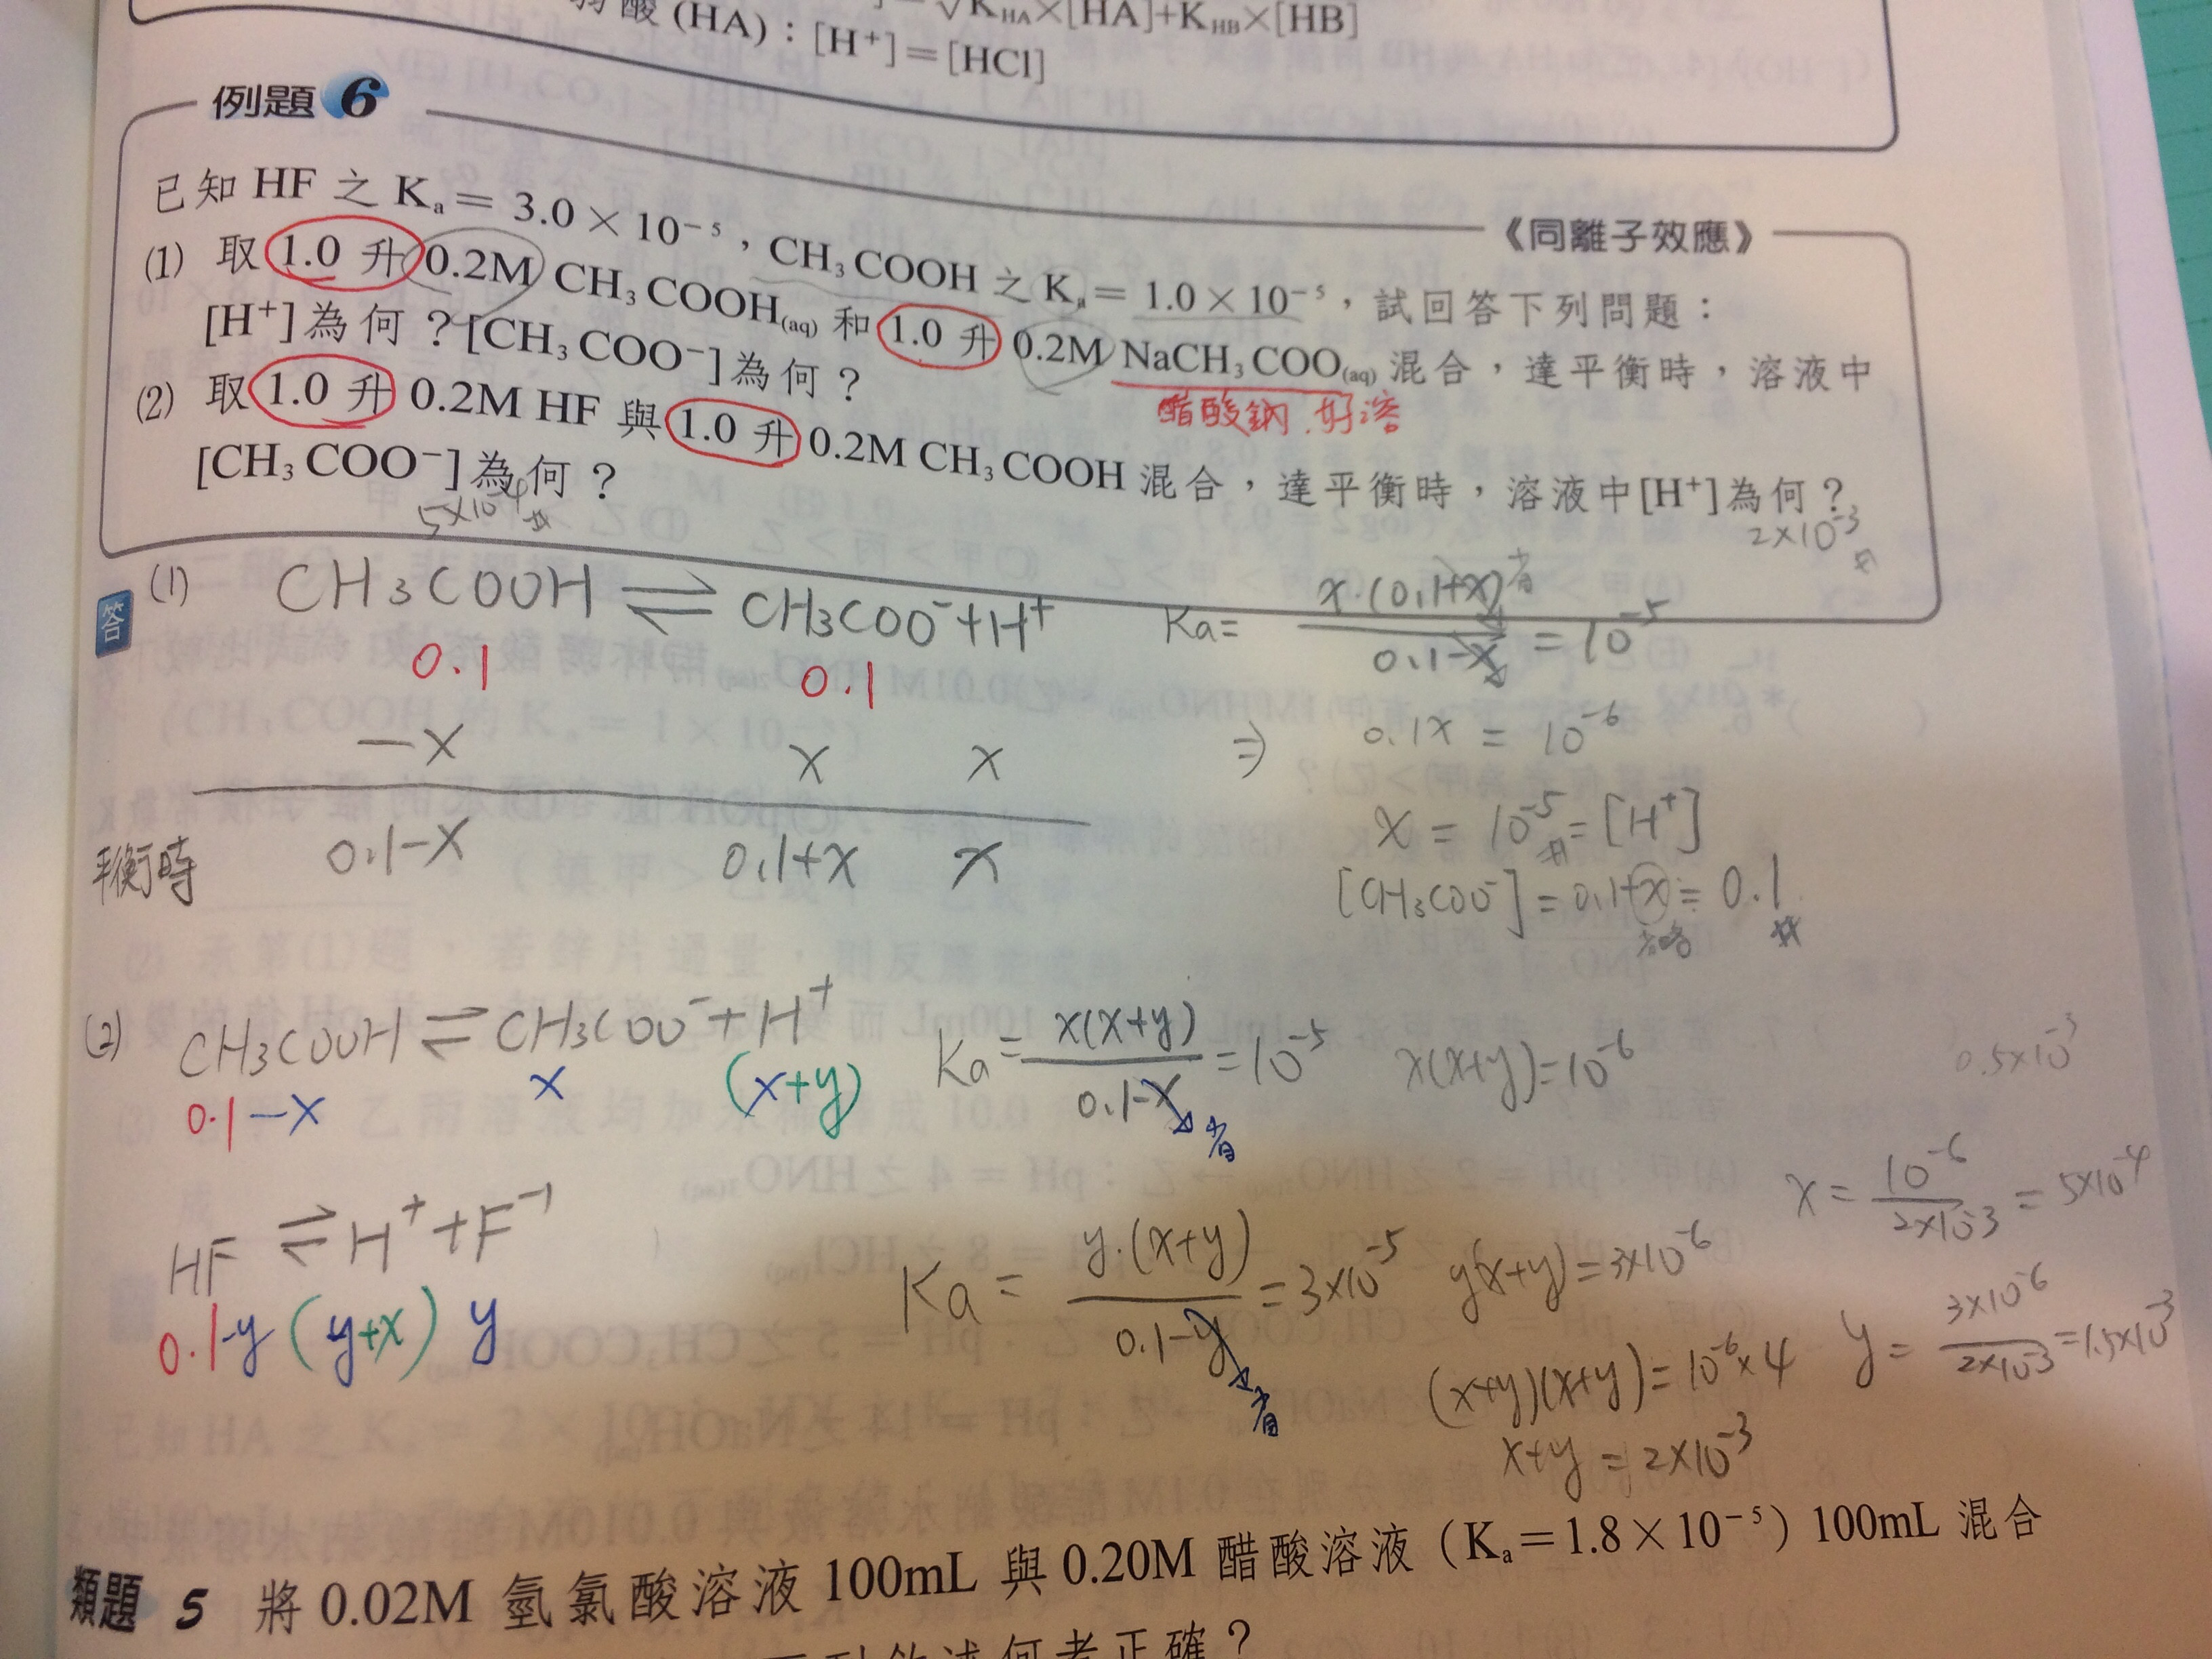 酸 (HA)：[H⁺]＝[HCl]
√K_HA×[HA]+K_HB×[HB]
例題 6
《同離子效應》
已知 HF 之 Kₐ＝ 3.0 × 10⁻⁵，CH₃COOH 之 Kₐ＝ 1.0 × 10⁻⁵，試回答下列問題：
⑴ 取 1.0 升 0.2M CH₃COOH(aq) 和 1.0 升 0.2M NaCH₃COO(aq) 混合，達平衡時，溶液中
醋酸鈉.好溶
[H⁺]為何？[CH₃COO⁻]為何？
⑵ 取 1.0 升 0.2M HF 與 1.0 升 0.2M CH₃COOH 混合，達平衡時，溶液中[H⁺]為何？
2×10⁻³
[CH₃COO⁻]為何？
5×10⁻⁴
答
(1) CH₃COOH ⇌ CH₃COO⁻+H⁺
0.1 0.1
−x x x
平衡時 0.1−x 0.1+x x
Ka= x·(0.1+x)省 / 0.1−x = 10⁻⁵
⇒ 0.1x = 10⁻⁶
x = 10⁻⁵ = [H⁺]
[CH₃COO⁻] = 0.1+x ≒ 0.1
省略
(2) CH₃COOH ⇌ CH₃COO⁻+H⁺
0.1−x x (x+y)
Ka= x(x+y) / 0.1−x = 10⁻⁵ x(x+y)=10⁻⁶
省
0.5×10⁻³
HF ⇌ H⁺+F⁻¹
0.1−y (y+x) y
Ka = y.(x+y) / 0.1−y = 3×10⁻⁵ y(x+y)=3×10⁻⁶
省
(x+y)(x+y)=10⁻⁶×4
x+y = 2×10⁻³
x = 10⁻⁶ / 2×10⁻³ = 5×10⁻⁴
y = 3×10⁻⁶ / 2×10⁻³ =1.5×10⁻³
類題 5 將 0.02M 氫氯酸溶液 100mL 與 0.20M 醋酸溶液（Kₐ＝1.8 × 10⁻⁵）100mL 混合
何者正確？